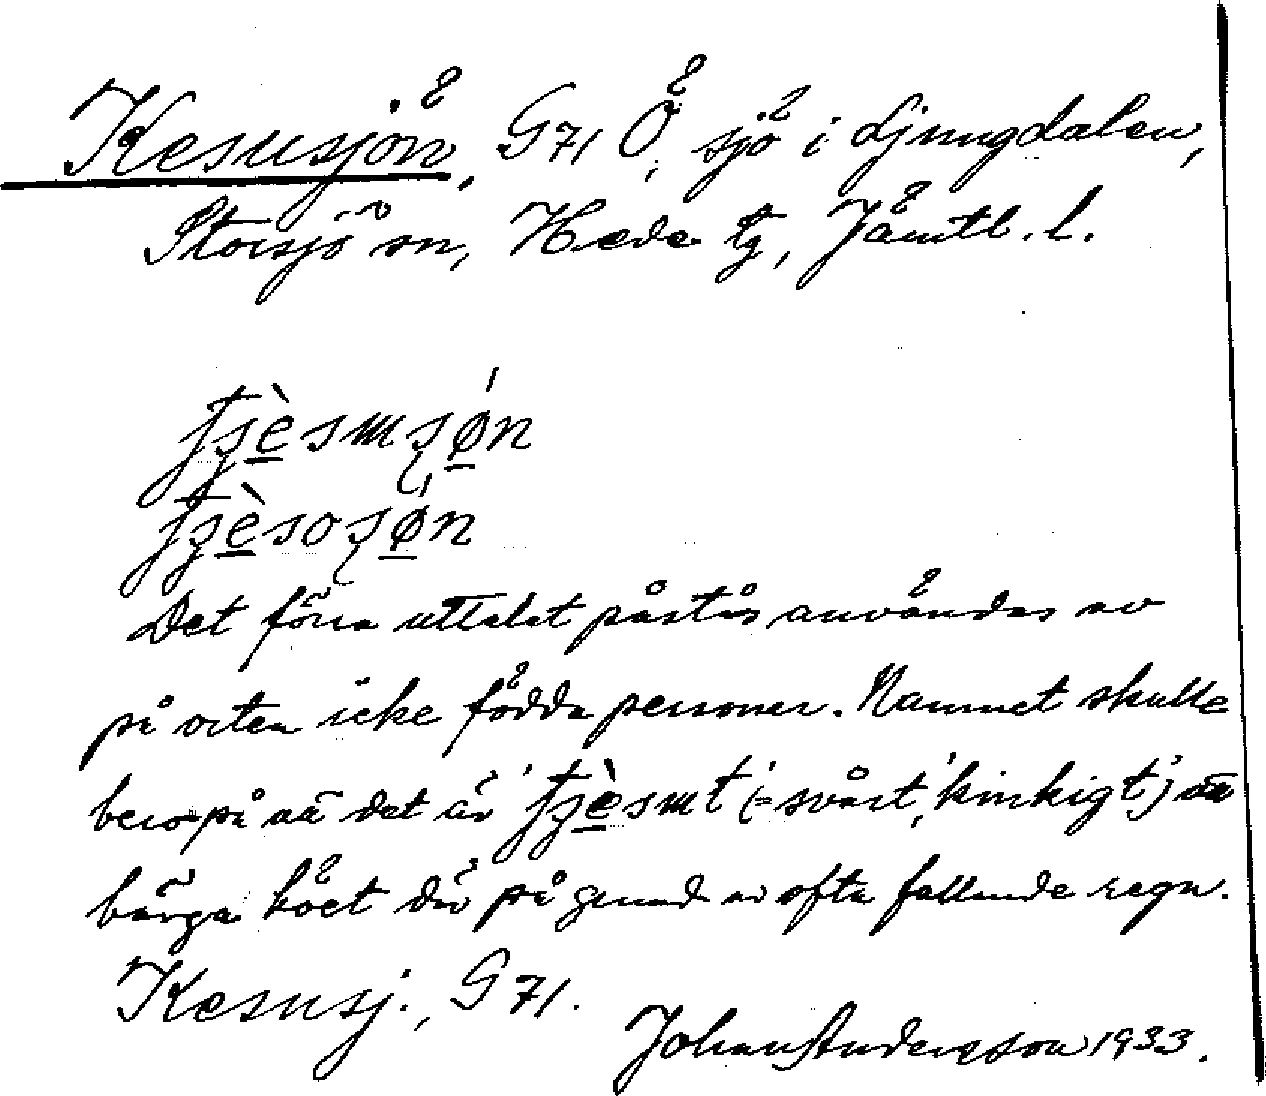 Kesusjön, G71 Ö, sjö i Ljungdalen,
Storsjö sn, Hede tg, Jämtl. l.
ʃʒèsɯʂǿn
ʃʒèsoʂǿn
Det förra uttalet påstås användas av
på orten icke födda personer. Namnet skulle
bero på att det är ʃʒèsɯt (= svårt, 'kinkigt') att
bärga höet där på grund av ofta fallande regn.
Kesusj., G 71.
Johan Andersson 1933.